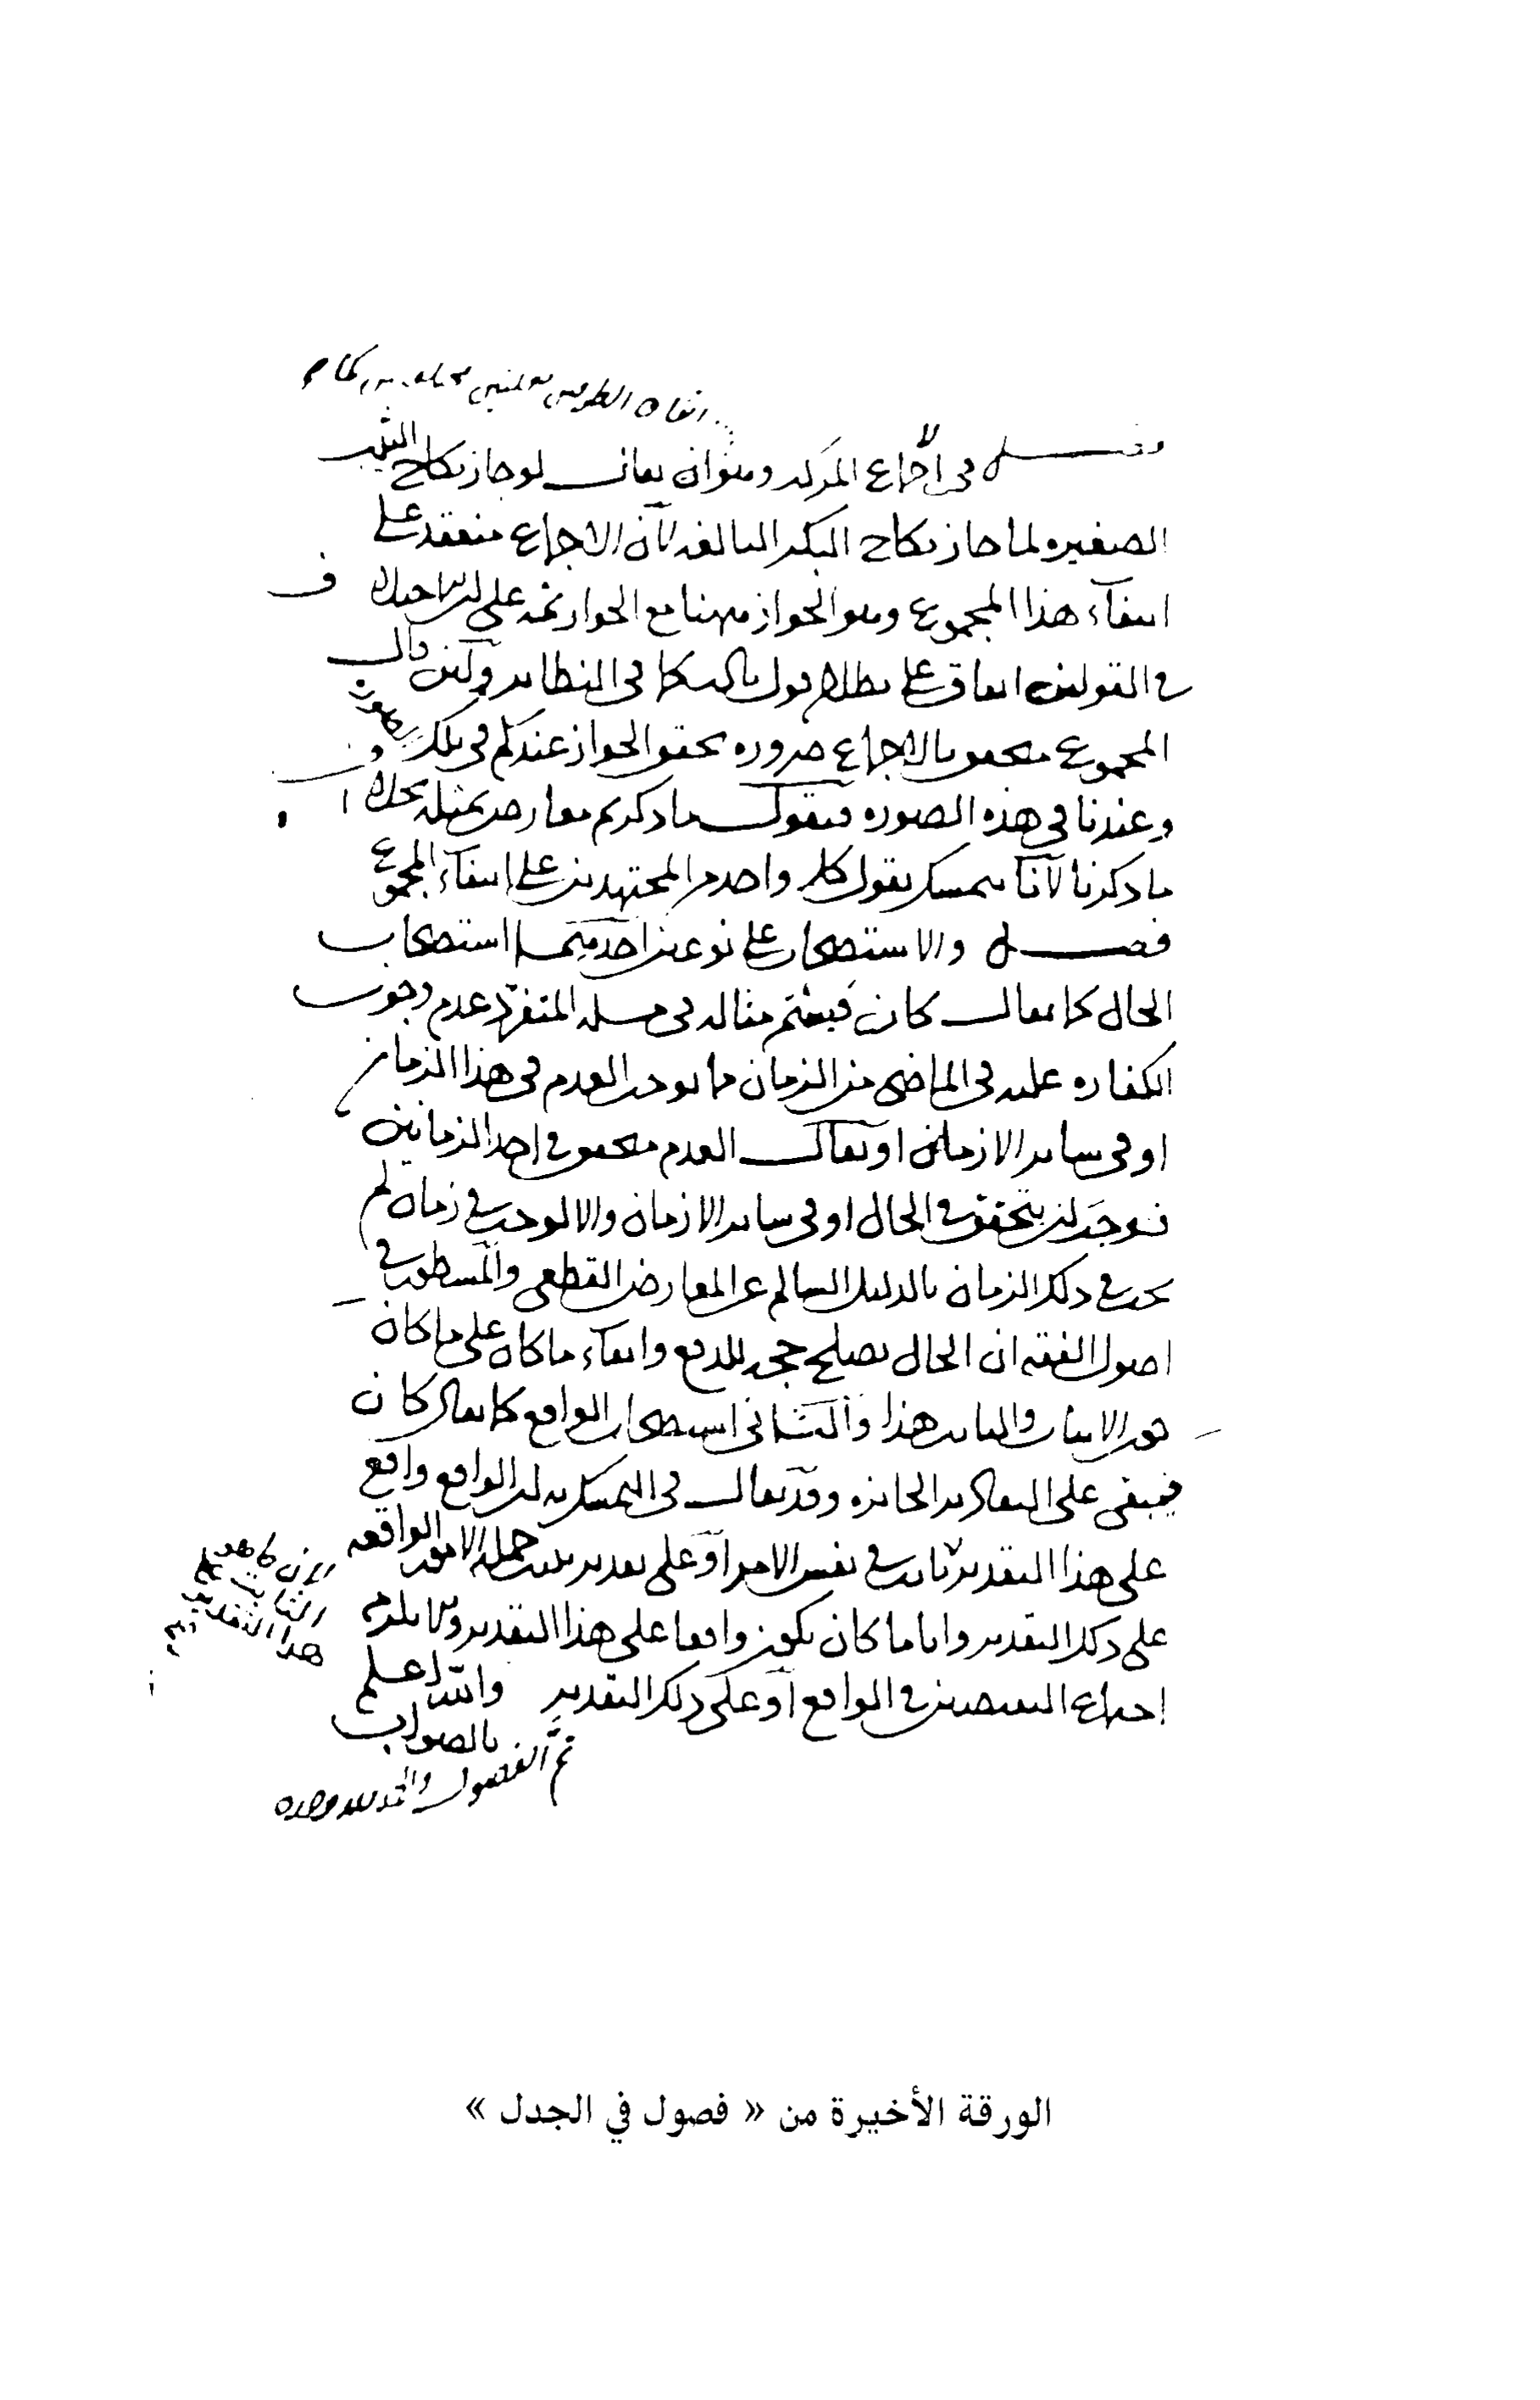 فصل في الإجماع المركب وهو أن يقال لو جاز نكاح الثيب
الصغيرة لما جاز نكاح البكر البالغة لأن الإجماع منعقد على
انتفاء هذا المجموع وهو الجواز ههنا مع الجواز ثمة على
في القولين اتفاق على بطلان قول ثالث كما في النظائر ولئن قال
المجموع متحقق بالإجماع ضرورة تحقق الجواز عندكم في تلك الصورة
وعندنا في هذه الصورة فنقول ما ذكرتم معارض بمثله بخلاف
ما ذكرنا لأنا نتمسك بقول كل واحد من المجتهدين على انتفاء المجموع
فصل والاستصحاب على نوعين أحدهما استصحاب
الحال كما يقال كان فيبقى مثاله في مسلة عدم وجوب
الكفارة عليه في الماضي من الزمان مما يوجب العدم في هذا الزمان
أو في ساير الازمان او يقال العدم متحقق في احد الزمانين
فوجب ان يتحقق في الحال او في ساير الازمان والا لوجب في زمان لم
يجب في ذلك الزمان بالدليل السالم عن المعارض القطعي والمسطور في
اصول الفقه ان الحال يصلح حجة للدفع وابقاء ما كان على ما كان
هذا والثاني استصحاب الواقع كما يقال كان
فيبقى على التقادير الجائزة وقد يقال في التمسك به ان الواقع واقع
على هذا التقدير ثابت في نفس الامر او على تقدير من جملة الامور الواقعة
على ذلك التقدير وايا ما كان يكون واقعا على هذا التقدير يلزم
اجتماع النقيضين في الواقع او على ذلك التقدير والله اعلم
بالصواب
تم الفصول والحمد لله وحده
الثابت على
هذا التقدير
الورقة الأخيرة من « فصول في الجدل »